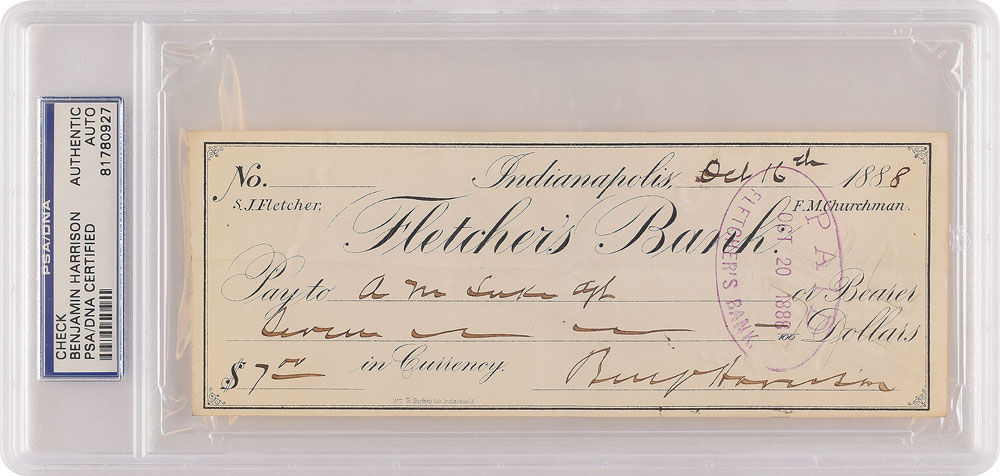 PSA/DNA
CHECK
BENJAMIN HARRISON
PSA/DNA CERTIFIED
AUTHENTIC
AUTO
81780927
No. Indianapolis, Oct 16th 1888
S.J. Fletcher. F.M. Churchman.
Fletcher's Bank.
Pay to A M Luke Agt or Bearer
Seven Dollars
100
$ 7 00 in Currency. Benj Harrison
PAID
OCT 20 1888
FLETCHER'S BANK.